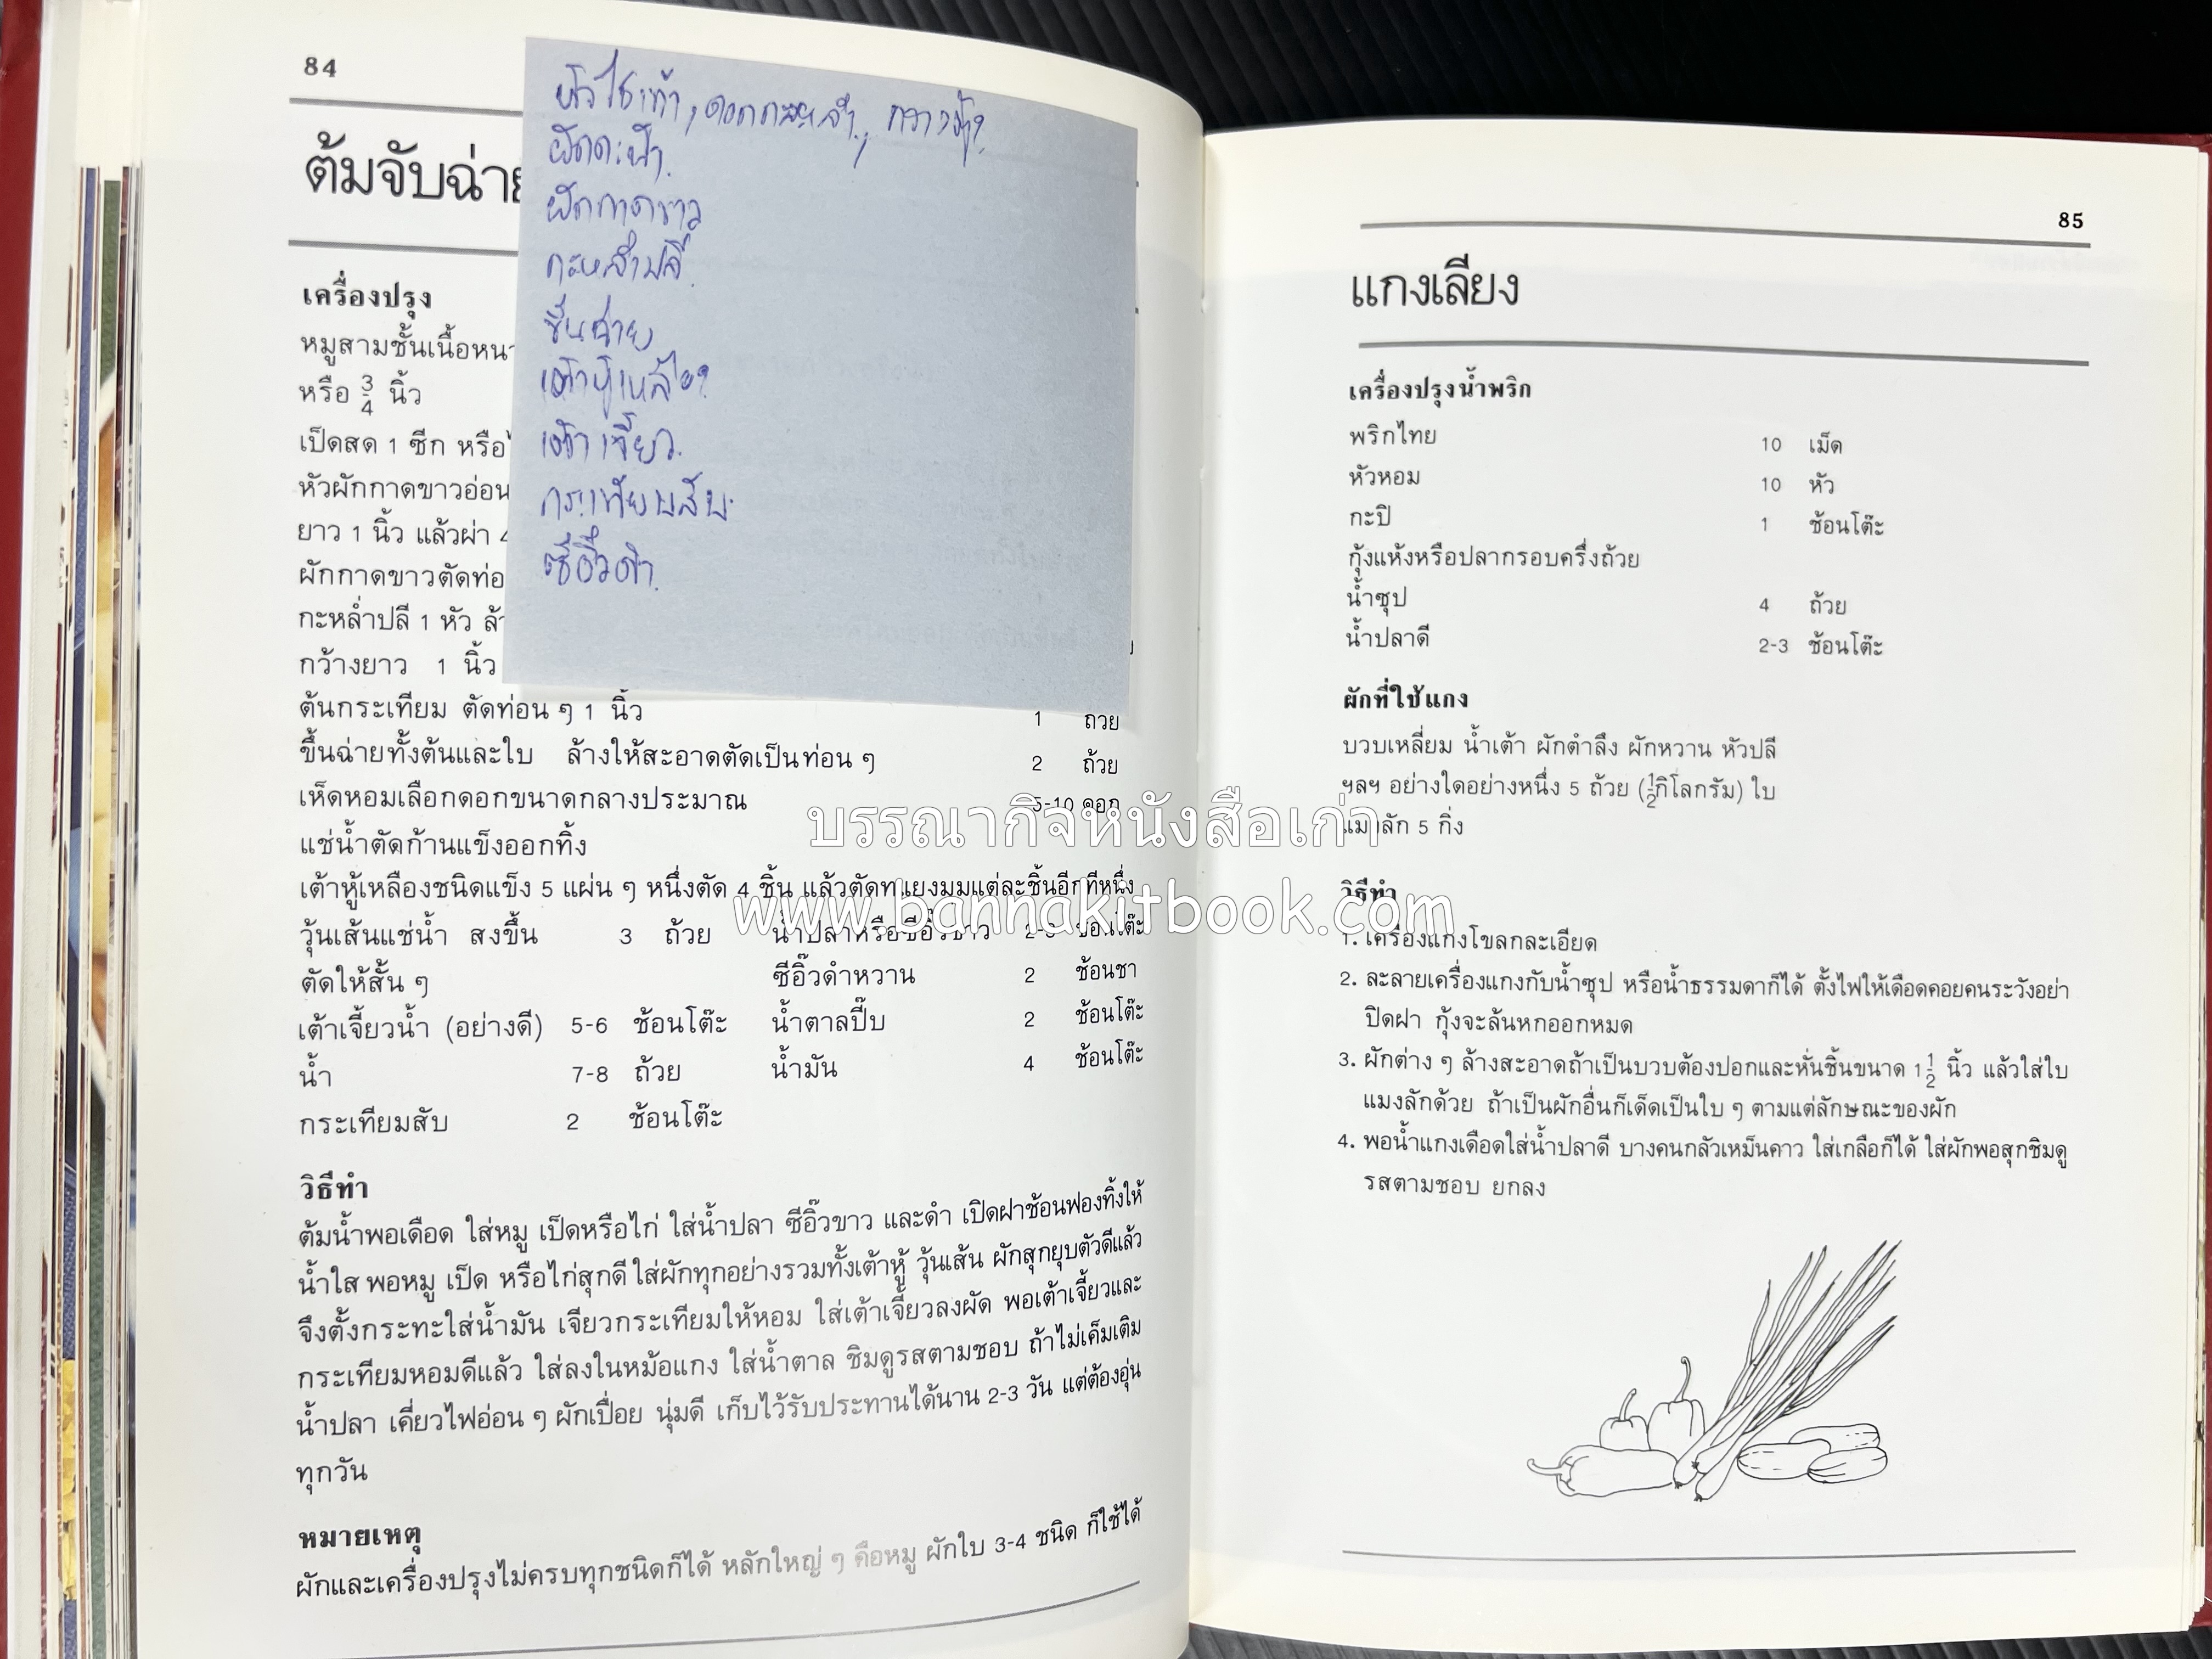 84
ต้มจับฉ่าย
หัวไชเท้า, ดอกกะหล่ำ,
ผักคะน้า
ผักกาดขาว
กะหล่ำปลี
ขึ้นฉ่าย
เต้าหู้เหลือง
เต้าเจี้ยว
กระเทียมสับ
ซีอิ๊วดำ
เครื่องปรุง
หมูสามชั้นเนื้อหนา
หรือ 3/4 นิ้ว
เป็ดสด 1 ซีก หรือ
หัวผักกาดขาวอ่อน
ยาว 1 นิ้ว แล้วผ่า 4
ผักกาดขาวตัดท่อ
กะหล่ำปลี 1 หัว ล้า
กว้างยาว 1 นิ้ว
ต้นกระเทียม ตัดท่อน ๆ 1 นิ้ว 1 ถ้วย
ขึ้นฉ่ายทั้งต้นและใบ ล้างให้สะอาดตัดเป็นท่อน ๆ 2 ถ้วย
เห็ดหอมเลือกดอกขนาดกลางประมาณ 5-10 ดอก
แช่น้ำตัดก้านแข็งออกทิ้ง
เต้าหู้เหลืองชนิดแข็ง 5 แผ่น ๆ หนึ่งตัด 4 ชิ้น แล้วตัดทแยงมุมแต่ละชิ้นอีกทีหนึ่ง
วุ้นเส้นแช่น้ำ สงขึ้น 3 ถ้วย น้ำปลาหรือซีอิ๊วขาว 2-3 ช้อนโต๊ะ
ตัดให้สั้น ๆ ซีอิ๊วดำหวาน 2 ช้อนชา
เต้าเจี้ยวน้ำ (อย่างดี) 5-6 ช้อนโต๊ะ น้ำตาลปี๊บ 2 ช้อนโต๊ะ
น้ำ 7-8 ถ้วย น้ำมัน 4 ช้อนโต๊ะ
กระเทียมสับ 2 ช้อนโต๊ะ
วิธีทำ
ต้มน้ำพอเดือด ใส่หมู เป็ดหรือไก่ ใส่น้ำปลา ซีอิ๊วขาว และดำ เปิดฝาช้อนฟองทิ้งให้
น้ำใส พอหมู เป็ด หรือไก่สุกดี ใส่ผักทุกอย่างรวมทั้งเต้าหู้ วุ้นเส้น ผักสุกยุบตัวดีแล้ว
จึงตั้งกระทะใส่น้ำมัน เจียวกระเทียมให้หอม ใส่เต้าเจี้ยวลงผัด พอเต้าเจี้ยวและ
กระเทียมหอมดีแล้ว ใส่ลงในหม้อแกง ใส่น้ำตาล ชิมดูรสตามชอบ ถ้าไม่เค็มเติม
น้ำปลา เคี่ยวไฟอ่อน ๆ ผักเปื่อย นุ่มดี เก็บไว้รับประทานได้นาน 2-3 วัน แต่ต้องอุ่น
ทุกวัน
หมายเหตุ
ผักและเครื่องปรุงไม่ครบทุกชนิดก็ได้ หลักใหญ่ ๆ คือหมู ผักใบ 3-4 ชนิด ก็ใช้ได้
85
แกงเลียง
เครื่องปรุงน้ำพริก
พริกไทย 10 เม็ด
หัวหอม 10 หัว
กะปิ 1 ช้อนโต๊ะ
กุ้งแห้งหรือปลากรอบครึ่งถ้วย
น้ำซุป 4 ถ้วย
น้ำปลาดี 2-3 ช้อนโต๊ะ
ผักที่ใช้แกง
บวบเหลี่ยม น้ำเต้า ผักตำลึง ผักหวาน หัวปลี
ฯลฯ อย่างใดอย่างหนึ่ง 5 ถ้วย (1/2กิโลกรัม) ใบ
แมงลัก 5 กิ่ง
วิธีทำ
1. เครื่องแกงโขลกละเอียด
2. ละลายเครื่องแกงกับน้ำซุป หรือน้ำธรรมดาก็ได้ ตั้งไฟให้เดือดคอยคนระวังอย่า
ปิดฝา กุ้งจะล้นหกออกหมด
3. ผักต่าง ๆ ล้างสะอาดถ้าเป็นบวบต้องปอกและหั่นชิ้นขนาด 1 1/2 นิ้ว แล้วใส่ใบ
แมงลักด้วย ถ้าเป็นผักอื่นก็เด็ดเป็นใบ ๆ ตามแต่ลักษณะของผัก
4. พอน้ำแกงเดือดใส่น้ำปลาดี บางคนกลัวเหม็นคาว ใส่เกลือก็ได้ ใส่ผักพอสุกชิมดู
รสตามชอบ ยกลง
บรรณากิจหนังสือเก่า
www.bannakitbook.com